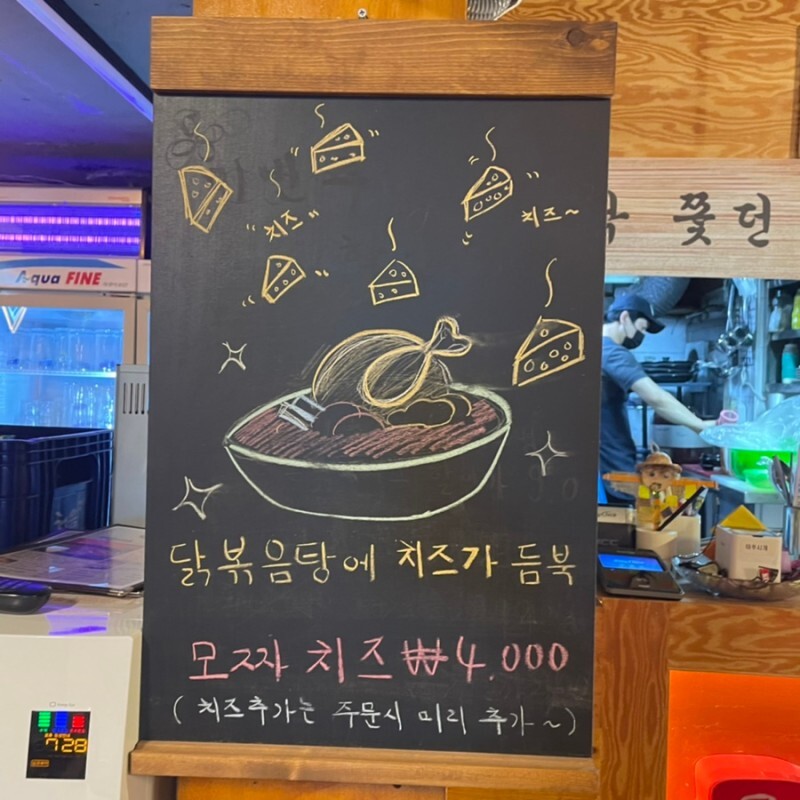 "치즈"
치즈~
닭볶음탕에 치즈가 듬뿍
모짜 치즈 ₩4.000
(치즈추가는 주문시 미리 추가~)
Aqua FINE
쫓던
728